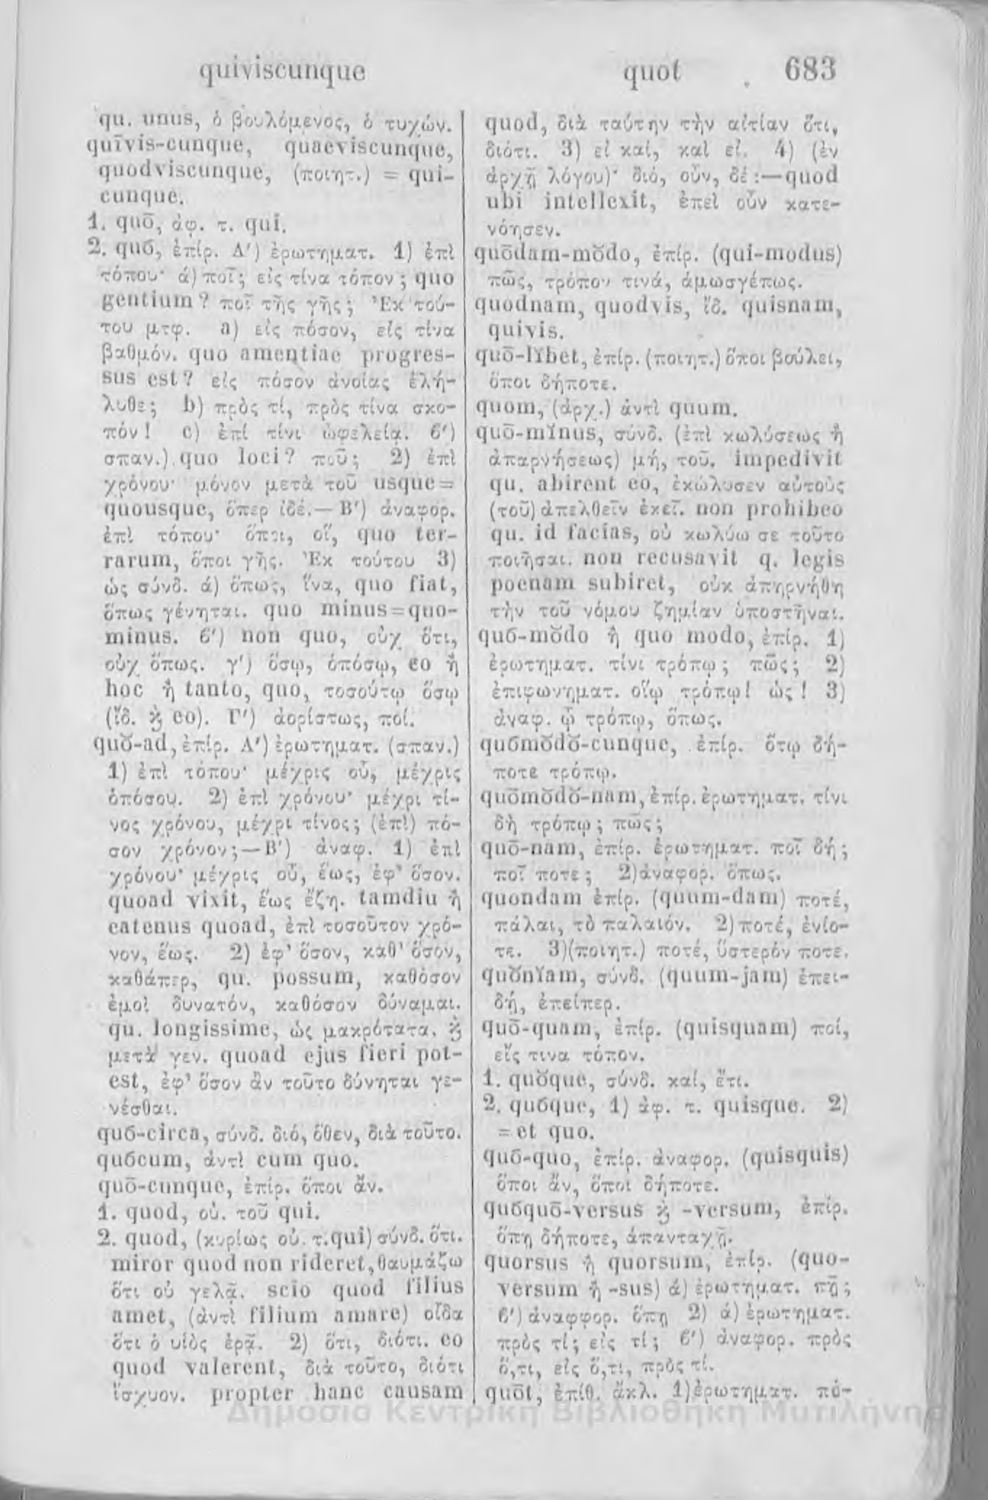 quiviscunque quot 683
qu. unus, ὁ βουλόμενος, ὁ τυχών.
quīvis-cunque, quaeviscunque,
quodviscunque, (ποιητ.) = qui-
cunque.
1. quō, ἀφ. τ. qui.
2. quō, ἐπίρ. Α′) ἐρωτηματ. 1) ἐπὶ
τόπου· ά) ποῖ; εἰς τίνα τόπον; quo
gentium? ποῖ τῆς γῆς; Ἐκ τού-
του μτφ. a) εἰς πόσον, εἰς τίνα
βαθμόν. quo amentiae progres-
sus est? εἰς πόσον ἀνοίας ἐλή-
λυθε; b) πρὸς τί, πρὸς τίνα σκο-
πόν! c) ἐπί τίνι ὠφελείᾳ. β′)
σπαν.) quo loci? ποῦ; 2) ἐπὶ
χρόνου· μόνον μετὰ τοῦ usque =
quousque, ὅπερ ἰδέ.— Β′) ἀναφορ.
ἐπὶ τόπου· ὅποι, οἷ, quo ter-
rarum, ὅποι γῆς. Ἐκ τούτου 3)
ὡς σύνδ. ά) ὅπως, ἵνα, quo fiat,
ὅπως γένηται. quo minus=quo-
minus. β′) non quo, οὐχ ὅτι,
οὐχ ὅπως. γ′) ὅσῳ, ὁπόσῳ, eo ἢ
hoc ἢ tanto, quo, τοσούτῳ ὅσῳ
(ἴδ. ϗ eo). Γ′) ἀορίστως, ποί.
quŏ-ad, ἐπίρ. Α′) ἐρωτηματ. (σπαν.)
1) ἐπὶ τόπου· μέχρις οὗ, μέχρις
ὁπόσου. 2) ἐπὶ χρόνου· μέχρι τί-
νος χρόνου, μέχρι τίνος; (ἐπὶ) πό-
σον χρόνον;—Β′) ἀναφ. 1) ἐπὶ
χρόνου· μέχρις οὗ, ἕως, ἐφ' ὅσον.
quoad vixit, ἕως ἔζη. tamdiu ἢ
eatenus quoad, ἐπὶ τοσοῦτον χρό-
νον, ἕως. 2) ἐφ' ὅσον, καθ' ὅσον,
καθάπερ, qu. possum, καθόσον
ἐμοὶ δυνατόν, καθόσον δύναμαι.
qu. longissime, ὡς μακρότατα. ϗ
μετὰ γεν. quoad ejus fieri pot-
est, ἐφ' ὅσον ἂν τοῦτο δύνηται γε-
νέσθαι.
quō-circa, σύνδ. διό, ὅθεν, διὰ τοῦτο.
quōcum, ἀντὶ cum quo.
quō-cunque, ἐπίρ. ὅποι ἄν.
1. quod, οὐ. τοῦ qui.
2. quod, (κυρίως οὐ. τ.qui) σύνδ. ὅτι.
miror quod non rideret, θαυμάζω
ὅτι οὐ γελᾷ. scio quod filius
amet, (ἀντὶ filium amare) οἶδα
ὅτι ὁ υἱὸς ἐρᾷ. 2) ὅτι, διότι. eo
quod valerent, διὰ τοῦτο, διότι
ἴσχυον. propter hanc causam
quod, διὰ ταύτην τὴν αἰτίαν ὅτι,
διότι. 3) εἰ καί, καὶ εἰ. 4) (ἐν
ἀρχῇ λόγου)· διό, οὖν, δέ:—quod
ubi intellexit, ἐπεὶ οὖν κατε-
νόησεν.
quōdam-mŏdo, ἐπίρ. (qui-modus)
πῶς, τρόπον τινά, ἁμωσγέπως.
quodnam, quodvis, ἴδ. quisnam,
quivis.
quō-lĭbet, ἐπίρ. (ποιητ.) ὅποι βούλει,
ὅποι δήποτε.
quom, (ἀρχ.) ἀντὶ quum.
quō-mĭnus, σύνδ. (ἐπὶ κωλύσεως ἢ
ἀπαρνήσεως) μή, τοῦ. impedivit
qu. abirent eo, ἐκώλυσεν αὐτοὺς
(τοῦ) ἀπελθεῖν ἐκεῖ. non prohibeo
qu. id facias, οὐ κωλύω σε τοῦτο
ποιῆσαι. non recusavit q. legis
poenam subiret, οὐκ ἀπηρνήθη
τὴν τοῦ νόμου ζημίαν ὑποστῆναι.
quō-mŏdo ἢ quo modo, ἐπίρ. 1)
ἐρωτηματ. τίνι τρόπῳ; πῶς; 2)
ἐπιφωνηματ. οἵῳ τρόπῳ! ὡς! 3)
ἀναφ. ᾧ τρόπῳ, ὅπως.
quōmŏdŏ-cunque, ἐπίρ. ὅτῳ δή-
ποτε τρόπῳ.
quōmŏdŏ-nam, ἐπίρ. ἐρωτηματ. τίνι
δὴ τρόπῳ; πῶς;
quō-nam, ἐπίρ. ἐρωτηματ. ποῖ δή;
ποῖ ποτε; 2)ἀναφορ. ὅπως.
quondam ἐπίρ. (quum-dam) ποτέ,
πάλαι, τὸ παλαιόν. 2) ποτέ, ἐνίο-
τε. 3)(ποιητ.) ποτέ, ὕστερόν ποτε.
quŏnĭam, σύνδ. (quum-jam) ἐπει-
δή, ἐπείπερ.
quō-quam, ἐπίρ. (quisquam) ποί,
εἴς τινα τόπον.
1. quŏque, σύνδ. καί, ἔτι.
2. quōque, 1) ἀφ. τ. quisque. 2)
= et quo.
quō-quo, ἐπίρ. ἀναφορ. (quisquis)
ὅποι ἄν, ὅποι δήποτε.
quōquō-versus ϗ -versum, ἐπίρ.
ὅπη δήποτε, ἁπανταχῇ.
quorsus ἢ quorsum, ἐπίρ. (quo-
versum ἢ -sus) ά) ἐρωτηματ. πῇ;
β′) ἀναφφορ. ὅπη 2) ά) ἐρωτηματ.
πρὸς τί; εἰς τί; β′) ἀναφορ. πρὸς
ὅ,τι, εἰς ὅ,τι, πρὸς τί.
quŏt, ἐπίθ. ἄκλ. 1)ἐρωτηματ. πό-
Δημόσια Κεντρική Βιβλιοθήκη Μυτιλήνης